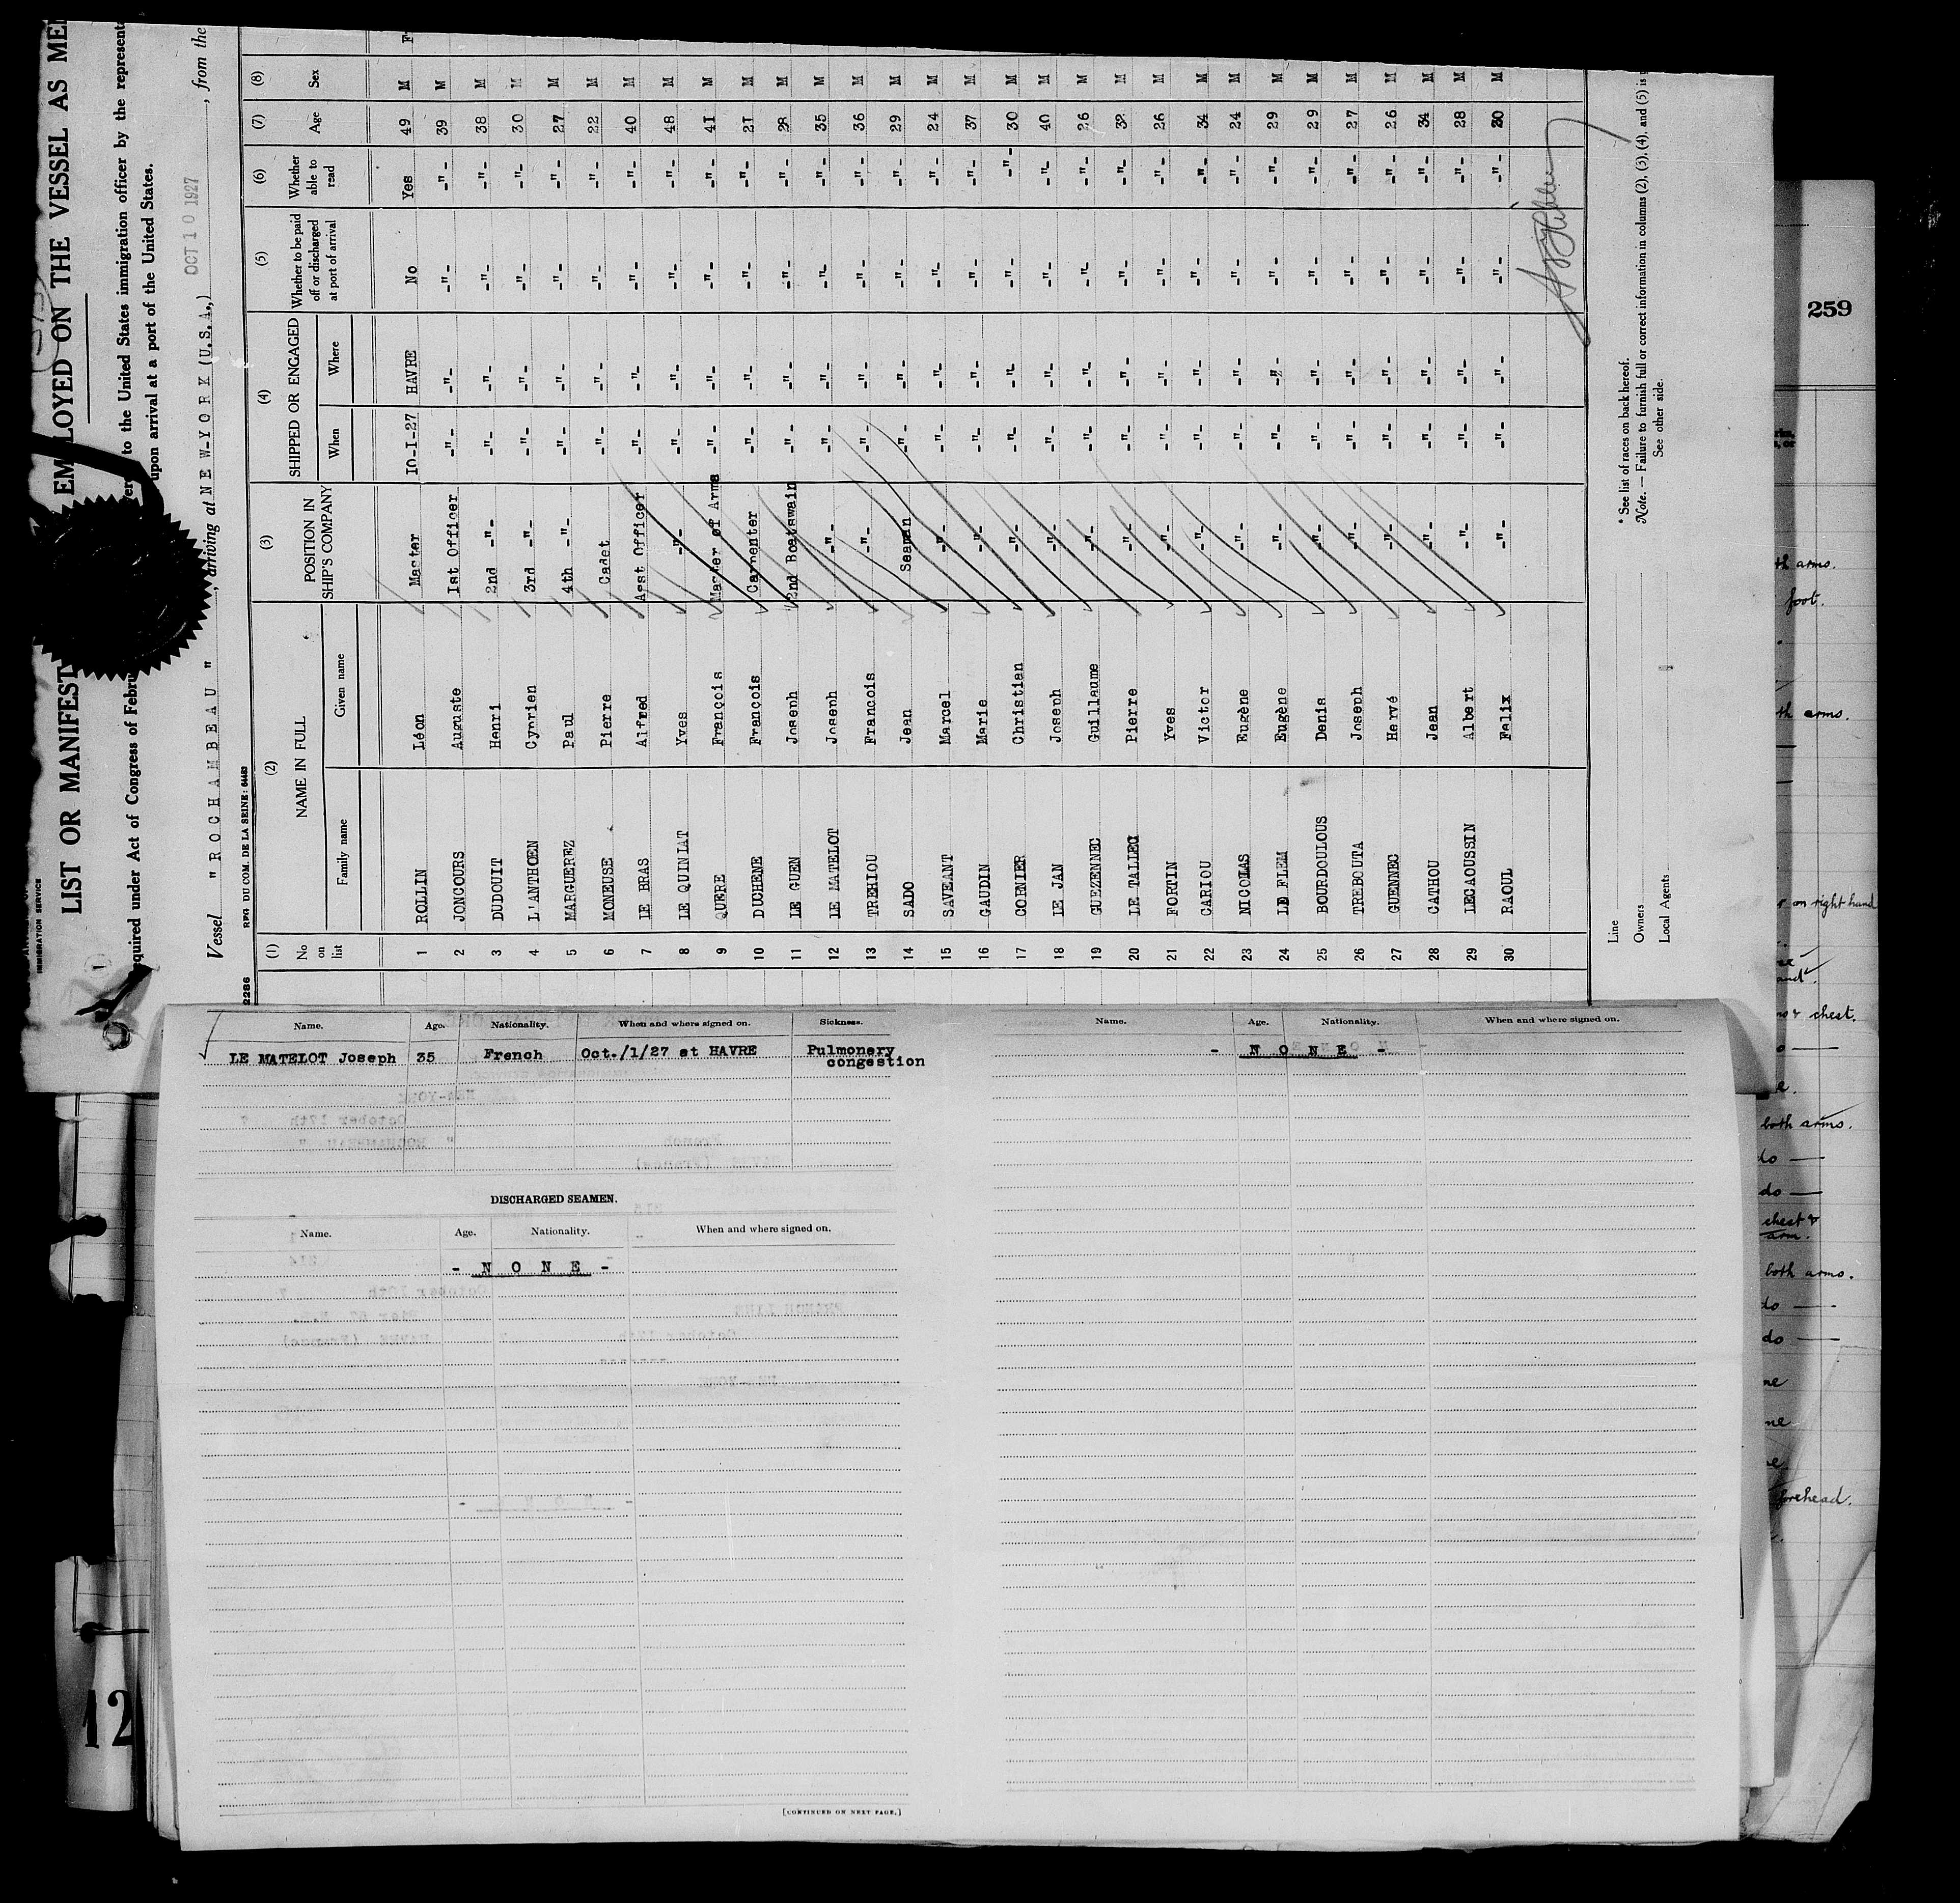 IMMIGRATION SERVICE
LIST OR MANIFEST EMPLOYED ON THE VESSEL AS
equired under Act of Congress of to the United States immigration officer by the
upon arrival at a port of the United States.
Vessel "ROCHAMBEAU", arriving at NEW-YORK (U.S.A.,) OCT 10 1927, from the
2286 RPG. DU COM. DE LA SEINE: 64483
(1) (2) (3) (4) (5) (6) (7) (8)
No on list NAME IN FULL POSITION IN SHIP'S COMPANY SHIPPED OR ENGAGED Whether to be paid off or discharged at port of arrival Whether able to read Age Sex
Family name Given name When Where
1 ROLLIN Léon Master IO-I-27 HAVRE No Yes 49 M
2 JONCOURS Auguste Ist Officer -"- -"- -"- -"- 39 M
3 DUDOUIT Henri 2nd -"- -"- -"- -"- -"- 38 M
4 L'ANTHOEN Cyprien 3rd -"- -"- -"- -"- -"- 30 M
5 MARGUEREZ Paul 4th -"- -"- -"- -"- -"- 27 M
6 MONEUSE Pierre Cadet -"- -"- -"- -"- 22 M
7 LE BRAS Alfred Asst Officer -"- -"- -"- -"- 40 M
8 LE QUINIAT Yves -"- -"- -"- -"- -"- 48 M
9 QUERE François Master of Arms -"- -"- -"- -"- 4I M
10 DUHENE François Carpenter -"- -"- -"- -"- 2I M
11 LE GUEN Joseph 2nd Boatswain -"- -"- -"- -"- 28 M
12 LE MATELOT Joseph -"- -"- -"- -"- -"- 35 M
13 TREHIOU Francois -"- -"- -"- -"- -"- 36 M
14 SADO Jean Seaman -"- -"- -"- -"- 29 M
15 SAVEANT Marcel -"- -"- -"- -"- -"- 24 M
16 GAUDIN Marie -"- -"- -"- -"- -"- 37 M
17 CORNIER Christian -"- -"- -"- -"- -"- 30 M
18 LE JAN Joseph -"- -"- -"- -"- -"- 40 M
19 GUEZENNEC Guillaume -"- -"- -"- -"- -"- 26 M
20 LE TALLEC Pierre -"- -"- -"- -"- -"- 32 M
21 FORTIN Yves -"- -"- -"- -"- -"- 26 M
22 CARIOU Victor -"- -"- -"- -"- -"- 34 M
23 NICOLAS Eugène -"- -"- -"- -"- -"- 24 M
24 LE FLEM Eugène -"- -"- -"- -"- -"- 29 M
25 BOURDOULOUS Denis -"- -"- -"- -"- -"- 29 M
26 TREBOUTA Joseph -"- -"- -"- -"- -"- 27 M
27 GUENNEC Hervé -"- -"- -"- -"- -"- 26 M
28 CATHOU Jean -"- -"- -"- -"- -"- 34 M
29 LEGAOUSSIN Albert -"- -"- -"- -"- -"- 28 M
30 RAOUL Felix -"- -"- -"- -"- -"- M
Line
Owners
Local Agents
* See list of races on back hereof.
Note. — Failure to furnish full or correct information in columns (2), (3), (4), and (5) is
See other side.
Name. Age. Nationality. When and where signed on. Sickness.
LE MATELOT Joseph 35 French Oct./1/27 at HAVRE Pulmonary
congestion
DISCHARGED SEAMEN.
Name. Age. Nationality. When and where signed on.
- N O N E -
[CONTINUED ON NEXT PAGE.]
Name. Age. Nationality. When and where signed on.
- N O N E -
259
arms.
foot.
arms.
on right hand
chest.
both arms.
do
do
chest &
arm.
both arms.
do
do
forehead.
12